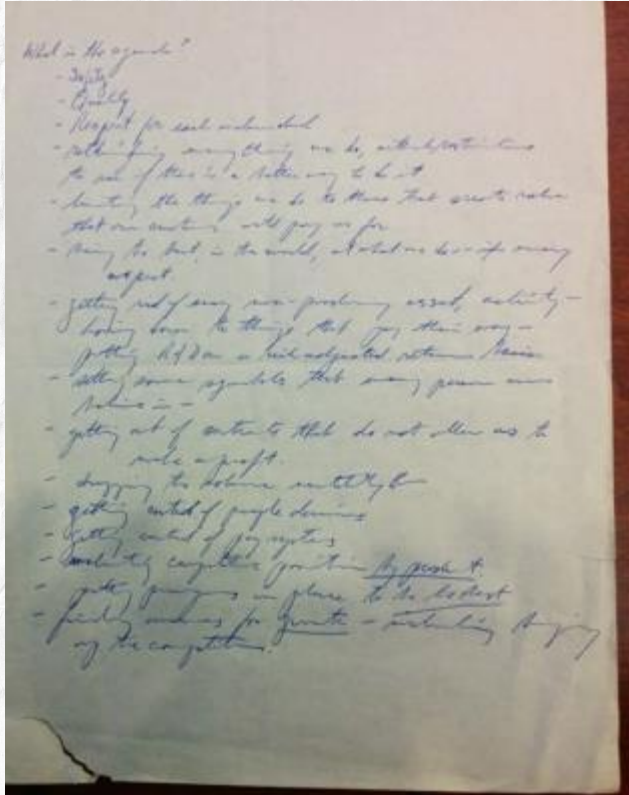 What is the agenda?
- Safety
- Quality
- Respect for each individual
- rethinking everything we do, without restrictions
to see if there is a better way to do it
- limiting the things we do to those that create value
that our customers will pay us for
- being the best, in the world, at what we do in every
aspect.
- getting rid of every non-producing asset, activity -
down to things that pay their way -
putting R&D on a risk adjusted return basis
- setting some that every person can
believe in -
- getting out of contracts that do not allow us to
make a profit.
- the
- getting control of people
- getting control of pay systems
- competitive position by product.
- putting programs in place to be the best
- finding avenues for growth - including buying
up the competition.